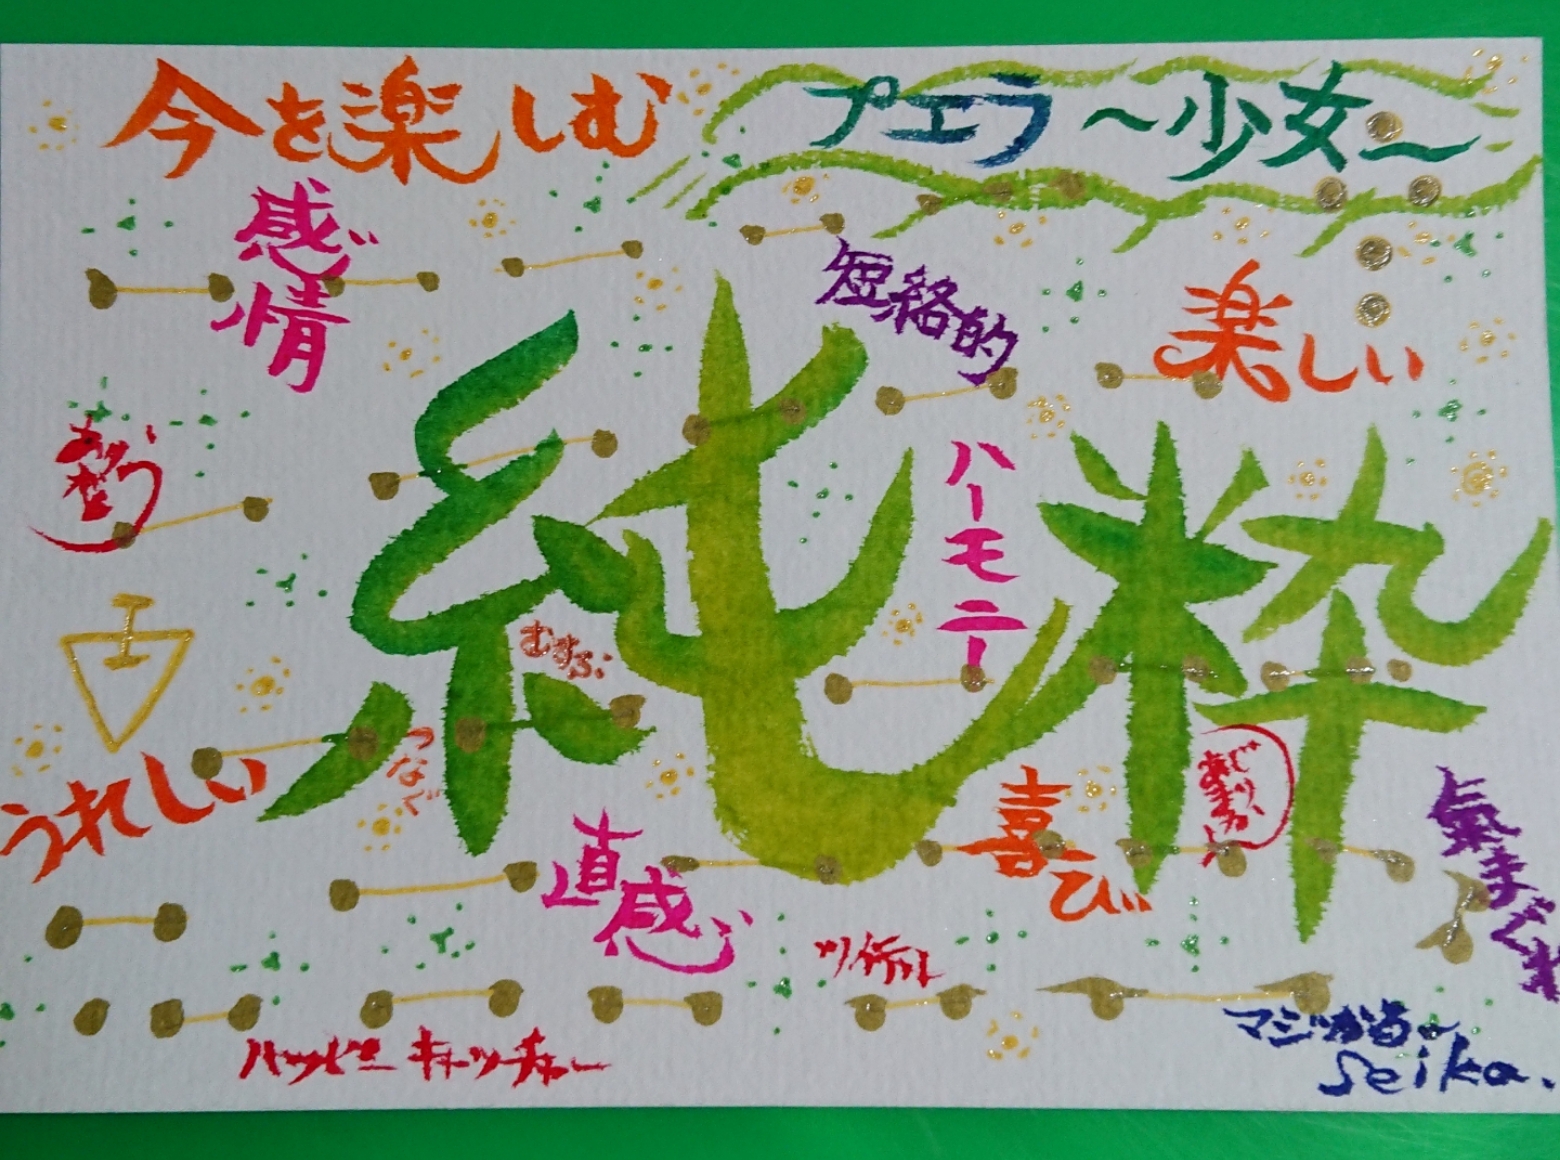 今を楽しむ
プエラ～少女～
感じ
情
短絡的
楽しい
ハーモニー
純粋
むすぶ
つなぐ
うれしい
直感
喜び
気まぐれ
ハッピーキャッチャー
マジかる～
Seika.